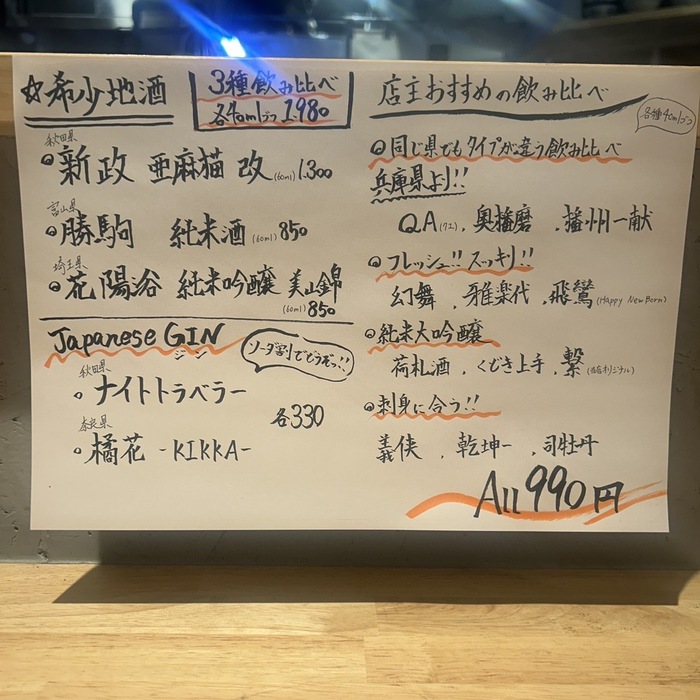 ☆希少地酒
3種飲み比べ
各40mlづつ 1980
秋田県
新政 亜麻猫 改 (60ml) 1,300
富山県
勝駒 純米酒 (60ml) 850
埼玉県
花陽浴 純米吟醸 美山錦
(60ml) 850
Japanese GIN
ジン
ソーダ割でどうぞっ!!
秋田県
ナイトトラベラー
各330
奈良県
橘花 -KIKKA-
店主おすすめの飲み比べ
各種40mlづつ
同じ県でもタイプが違う飲み比べ
兵庫県より!!
QA、奥播磨、播州一献
フレッシュ!!スッキリ!!
幻舞、雅楽代、飛鸞(Happy New Born)
純米大吟醸
荷札酒、くどき上手、繋(当店オリジナル)
刺身に合う!!
義侠、乾坤一、司牡丹
All 990円